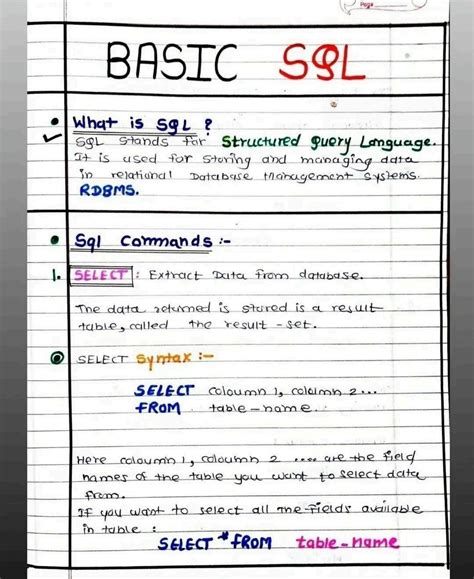 Page
BASIC SQL
What is SQL ?
SQL stands for Structured Query Language.
It is used for storing and managing data
in relational Database Management Systems.
RDBMS.
Sql Commands :-
1. SELECT : Extract Data from database.
The data returned is stored is a result
table, called the result - set.
SELECT Syntax :-
SELECT coloumn 1, coloumn 2 ...
FROM table-name.
Here coloumn 1, coloumn 2 .... are the field
names of the table you want to select data
from.
If you want to select all the fields available
in table :
SELECT * FROM table-name